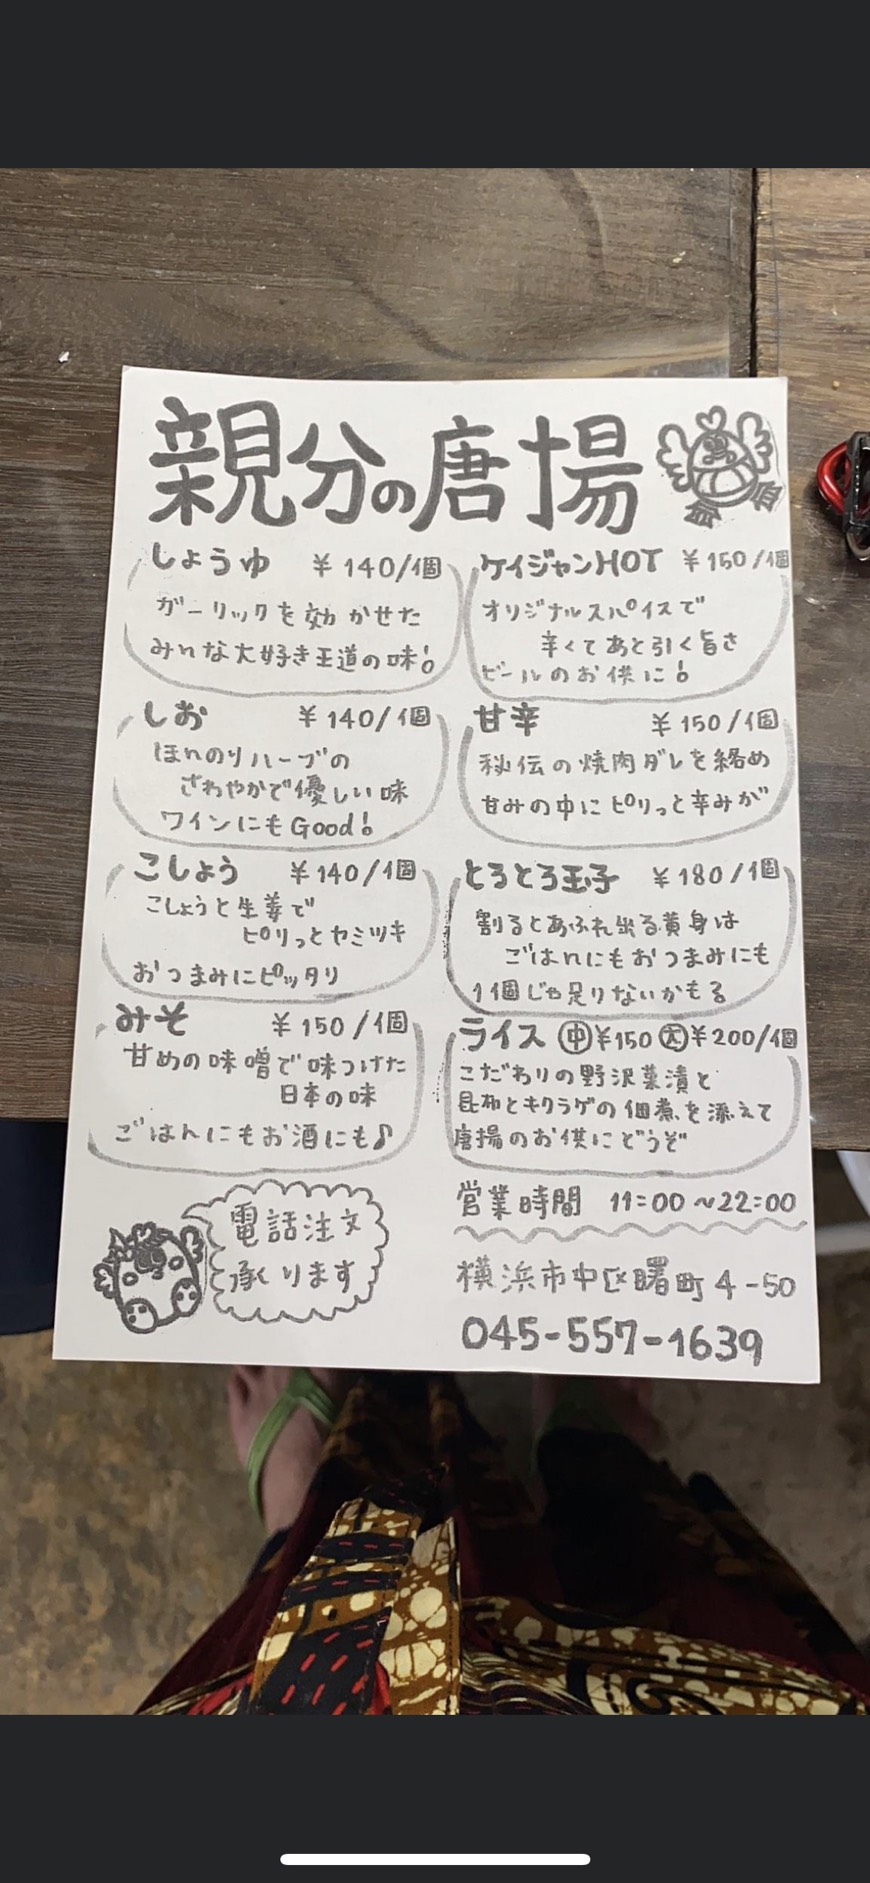 親分の唐揚
しょうゆ ¥140/1個
ガーリックを効かせた
みんな大好き王道の味!
しお ¥140/1個
ほんのりハーブの
さわやかで優しい味
ワインにもGood!
こしょう ¥140/1個
こしょうと生姜で
ピリっとヤミツキ
おつまみにピッタリ
みそ ¥150/1個
甘めの味噌で味つけた
日本の味
ごはんにもお酒にも♪
ケイジャンHOT ¥150/1個
オリジナルスパイスで
辛くてあと引く旨さ
ビールのお供に!
甘辛 ¥150/1個
秘伝の焼肉ダレを絡め
甘みの中にピリっと辛みが
とろとろ玉子 ¥180/1個
割るとあふれ出る黄身は
ごはんにもおつまみにも
1個じゃ足りないかもる
ライス ㊥¥150 大¥200/1個
こだわりの野沢菜漬と
昆布とキクラゲの佃煮を添えて
唐揚のお供にどうぞ
電話注文
承ります
営業時間 11:00~22:00
横浜市中区曙町4-50
045-557-1639